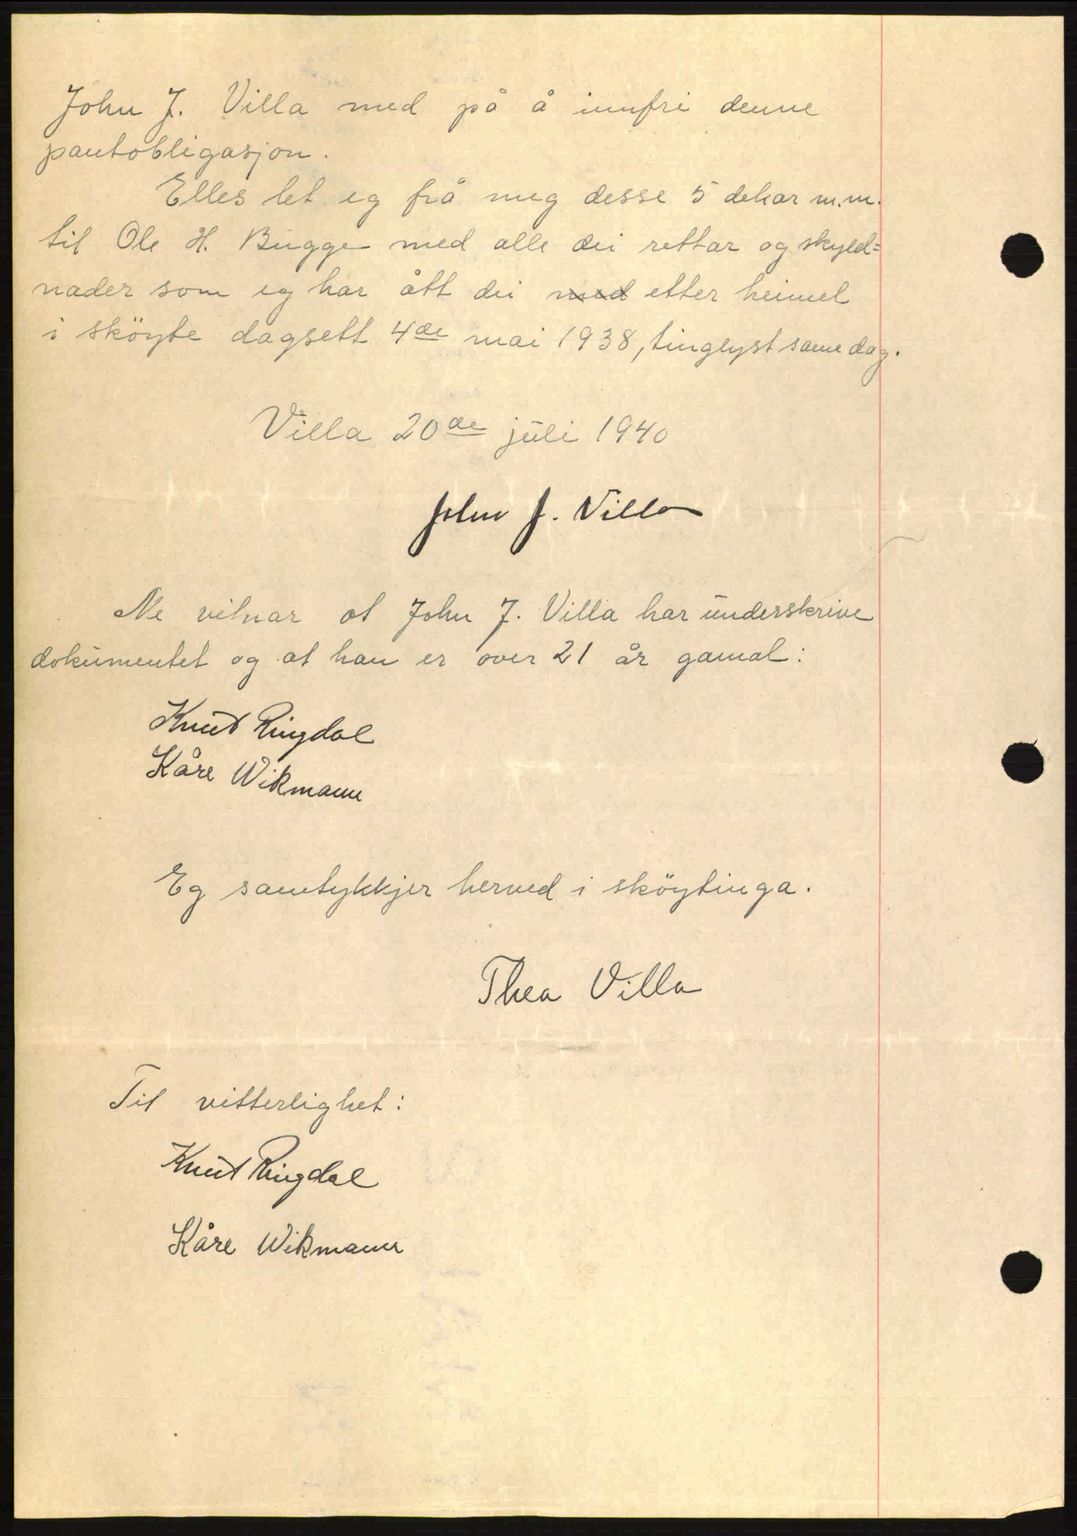 John J. Villa med på å innfri denne
pantobligasjon.
Elles let eg frå meg desse 5 dekar m.m.
til Ole H. Bugge med alle dei rettar og skyld=
nader som eg har ått dei med etter heimel
i sköyte dagsett 4de mai 1938, tinglyst same dag.
Villa 20de juli 1940
John J. Villa
Me vitnar at John J. Villa har underskrive
dokumentet og at han er over 21 år gamal:
Knut Ringdal
Kåre Wikmann
Eg samtykkjer herved i sköytinga.
Thea Villa
Til vitterlighet:
Knut Ringdal
Kåre Wikmann